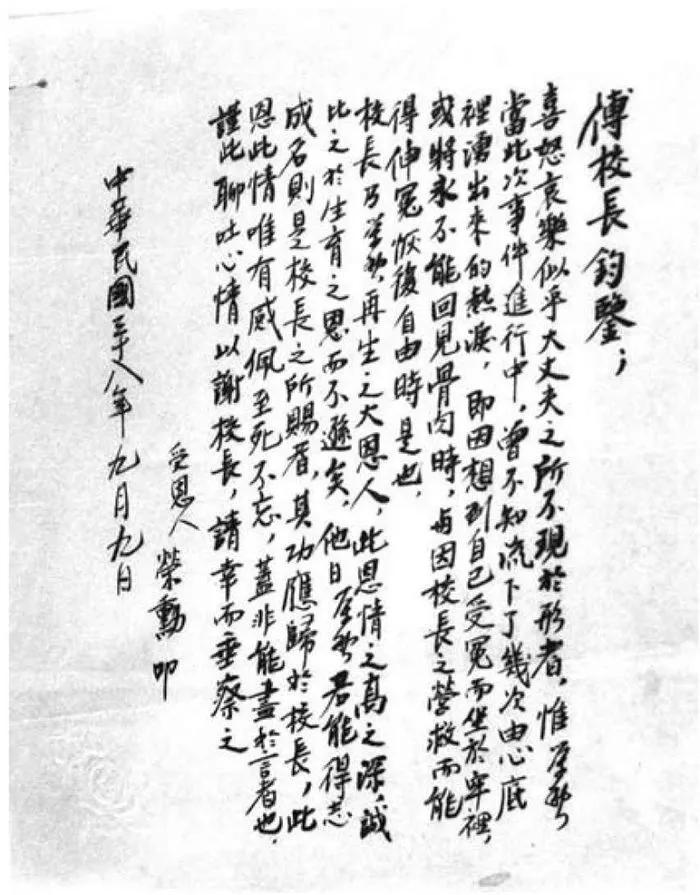 傅校長鈞鑒；
喜怒哀樂似乎大丈夫之所不現於形者，惟
當此次事件進行中，曾不知流下了幾次由心底
裡湧出來的熱淚，即因想到自己受冤而坐於牢裡，
或將永不能回見骨肉時，與因校長之營救而能
得伸冤恢復自由時是也，
校長乃再生之大恩人，此恩情之高之深誠
比之於生育之恩而不遜矣，他日若能得志
成名則是校長之所賜者，其功應歸於校長，此
恩此情唯有感佩至死不忘，蓋非能盡於言者也，
謹此聊吐心情以謝校長，請幸而垂察之
受恩人 榮勳 叩
中華民國三十八年九月九日